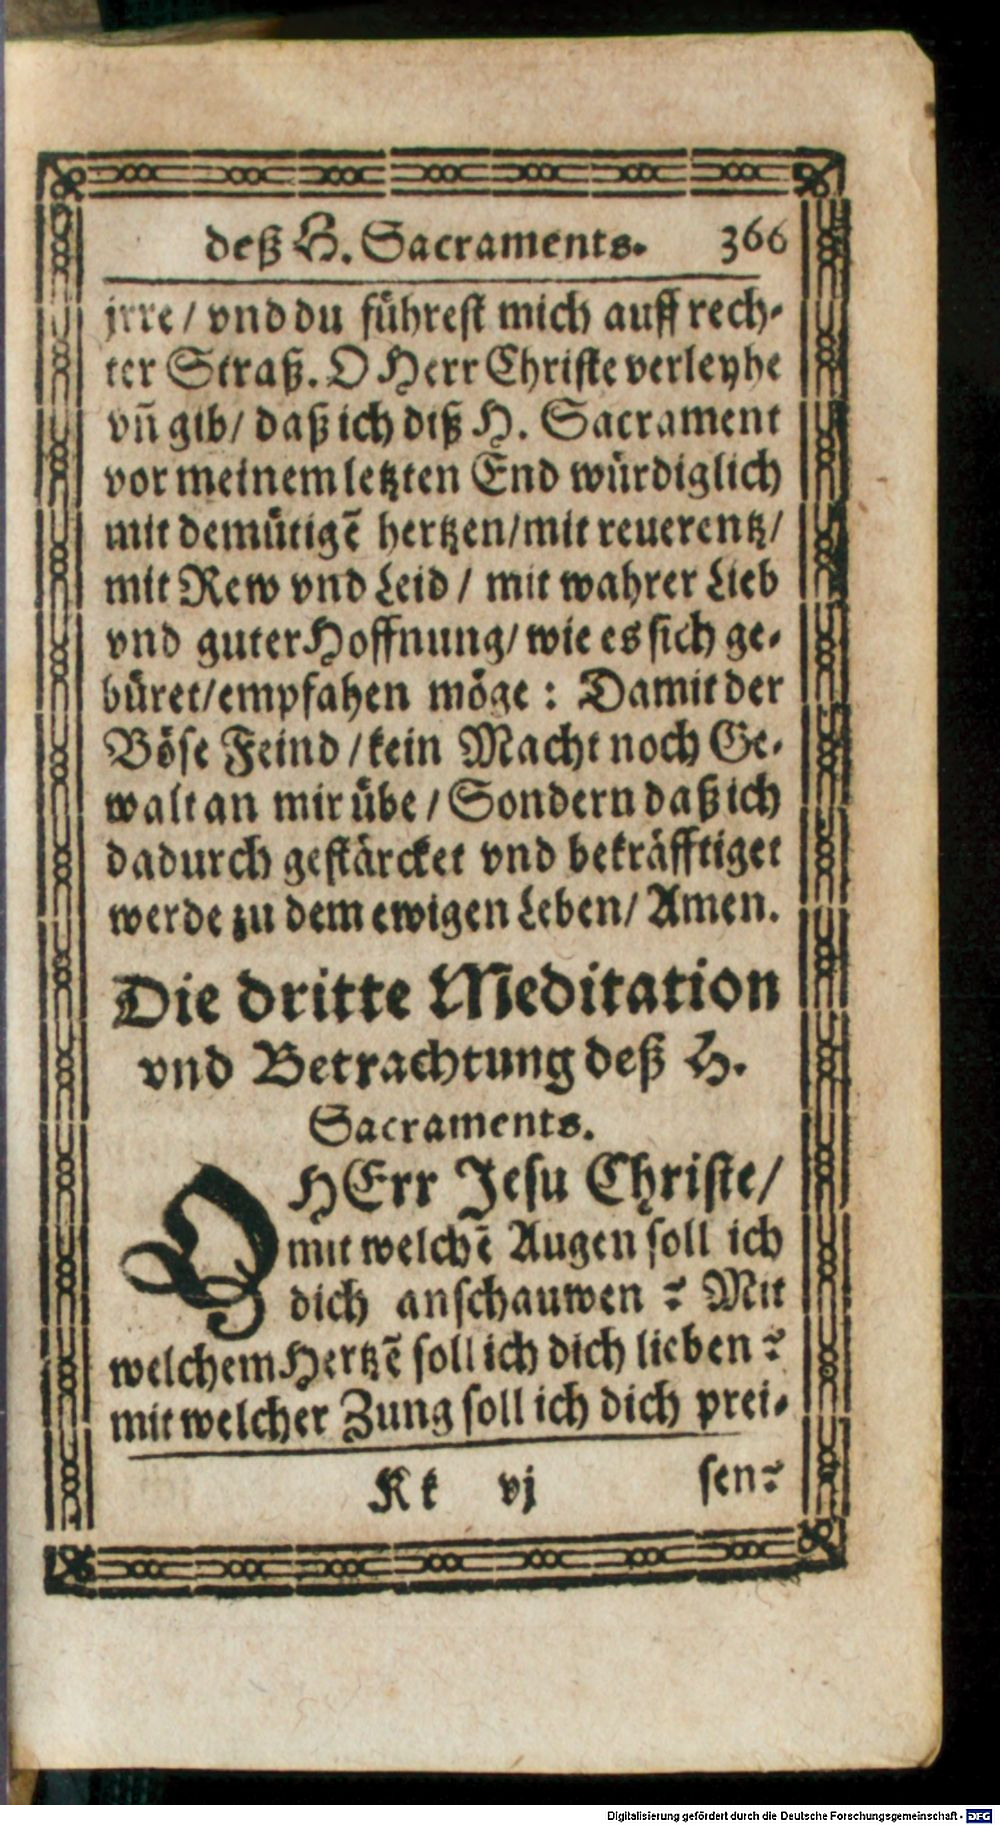 deß H. Sacraments. 366
jrre / vnd du führest mich auff rech-
ter Straß. O Herr Christe verleyhe
vñ gib / daß ich diß H. Sacrament
vor meinem letzten End würdiglich
mit demütigẽ hertzen / mit reuerentz /
mit Rew vnd Leid / mit wahrer Lieb
vnd guter Hoffnung / wie es sich ge-
büret / empfahen möge : Damit der
Böse Feind / kein Macht noch Ge-
walt an mir übe / Sondern daß ich
dadurch gestärcket vnd bekräfftiget
werde zu dem ewigen Leben / Amen.
Die dritte Meditation
vnd Betrachtung deß H.
Sacraments.
O HErr Jesu Christe /
mit welchẽ Augen soll ich
dich anschauwen ? Mit
welchem Hertzẽ soll ich dich lieben ?
mit welcher Zung soll ich dich prei-
Kk vj sen?
Digitalisierung gefördert durch die Deutsche Forschungsgemeinschaft - DFG